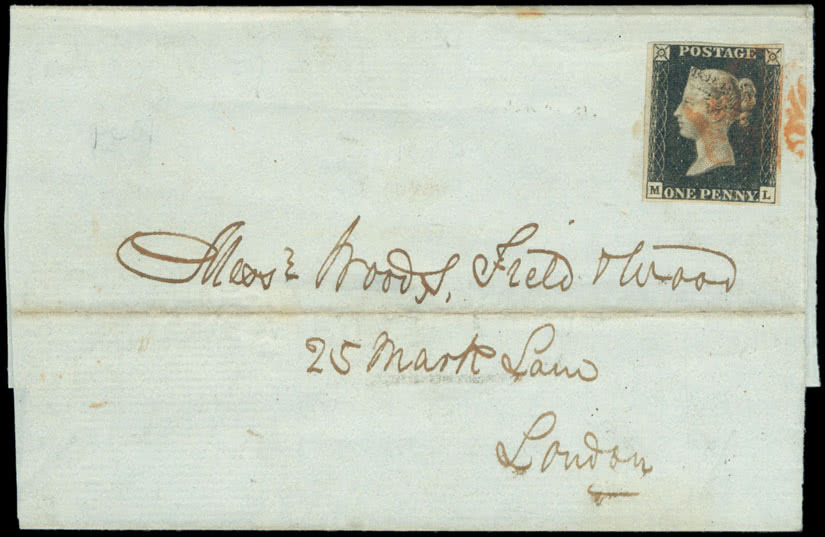 POSTAGE
M ONE PENNY. L
Messrs Woods, Field & Wood
25 Mark Lane
London